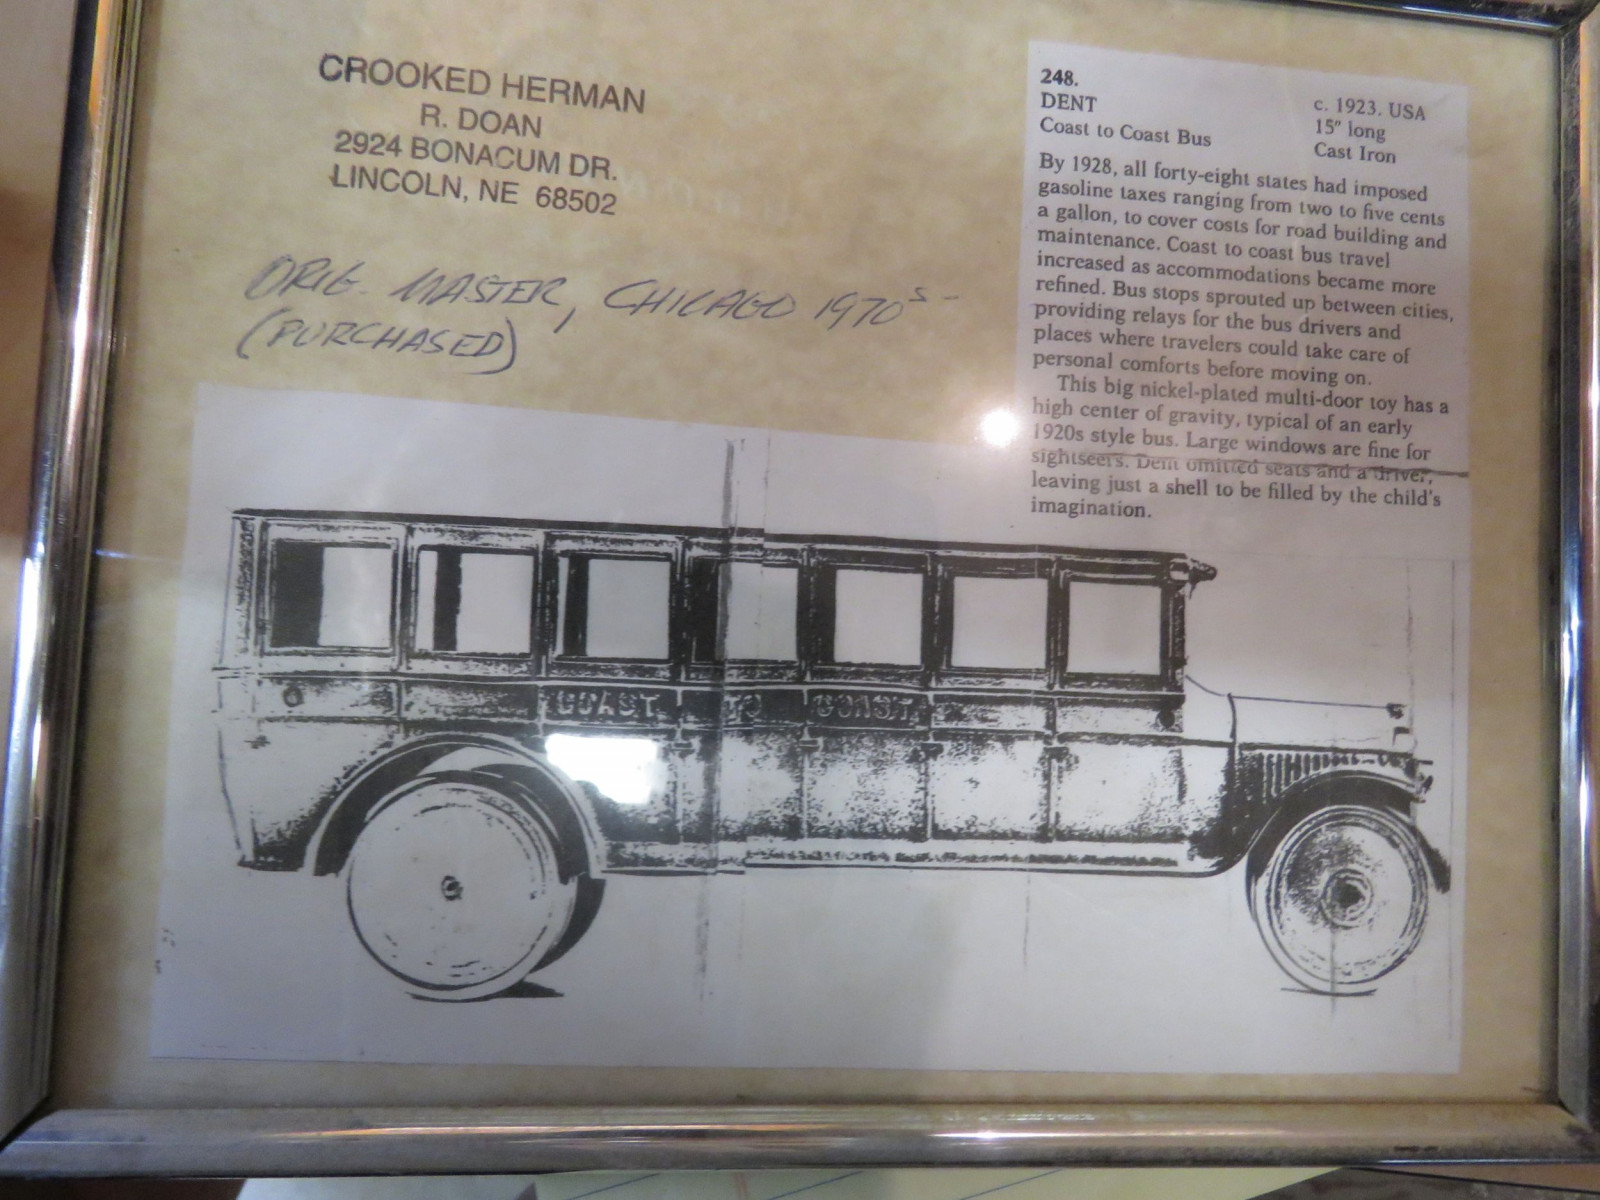 CROOKED HERMAN
R. DOAN
2924 BONACUM DR.
LINCOLN, NE 68502
ORIG. MASTER, CHICAGO 1970s-
(PURCHASED)
248.
DENT
Coast to Coast Bus
c. 1923. USA
15" long
Cast Iron
By 1928, all forty-eight states had imposed
gasoline taxes ranging from two to five cents
a gallon, to cover costs for road building and
maintenance. Coast to coast bus travel
increased as accommodations became more
refined. Bus stops sprouted up between cities,
providing relays for the bus drivers and
places where travelers could take care of
personal comforts before moving on.
This big nickel-plated multi-door toy has a
high center of gravity, typical of an early
1920s style bus. Large windows are fine for
sightseers. Dent omitted seats and a driver,
leaving just a shell to be filled by the child's
imagination.
COAST TO COAST